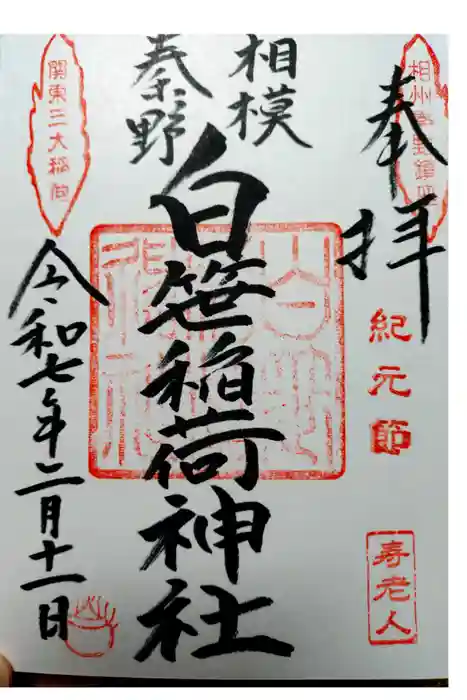 奉拝
相模
秦野
白笹稲荷神社
令和七年二月十一日
関東三大稲荷
紀元節
寿老人